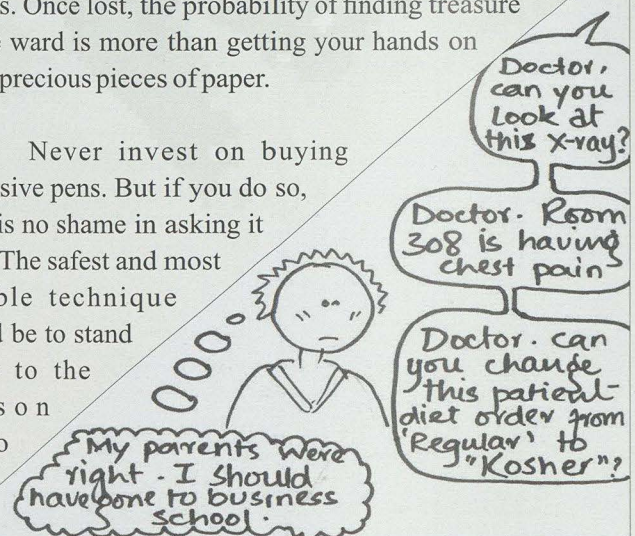 s. Once lost, the probability of finding treasure
ward is more than getting your hands on
precious pieces of paper.
Never invest on buying
sive pens. But if you do so,
is no shame in asking it
The safest and most
ble technique
be to stand
to the
son
Doctor.
can you
look at
this x-ray?
Doctor. Room
308 is having
chest pain
Doctor. can
you change
this patient
diet order from
'Regular' to
"Kosher"?
My parents were
right. I should
have gone to business
school.